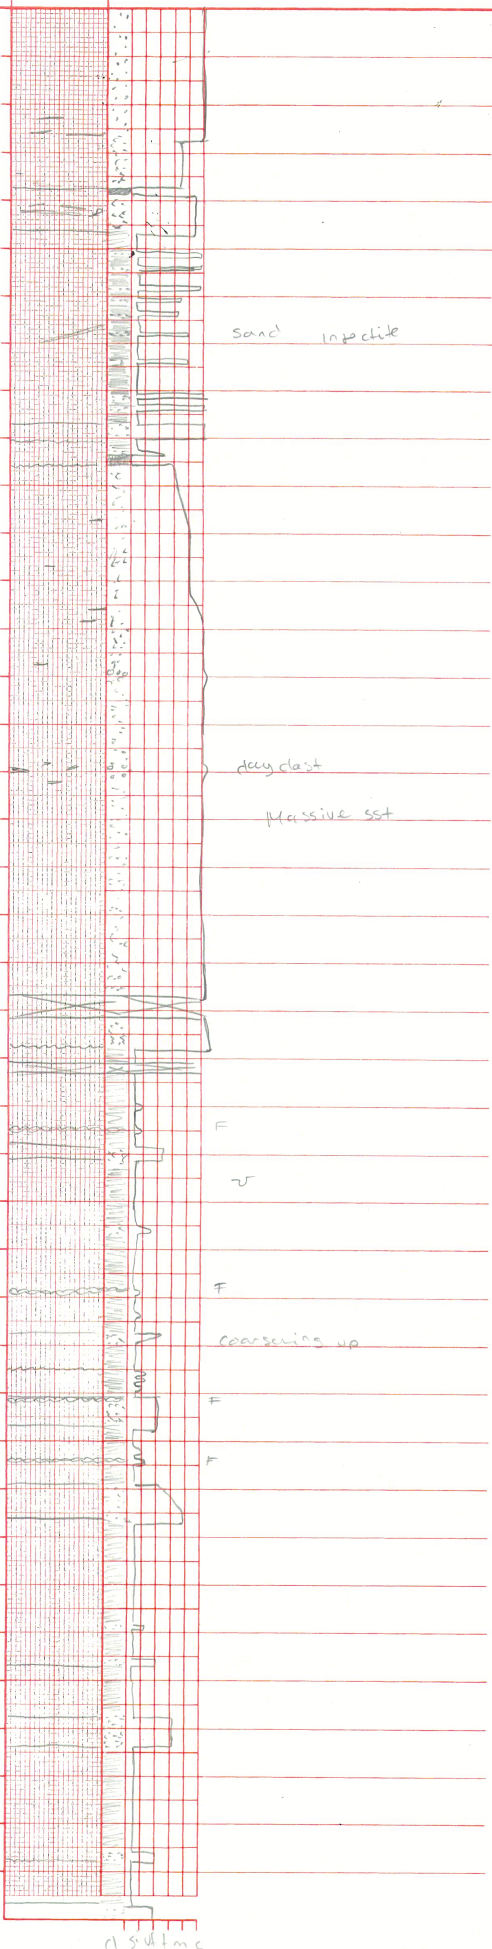 Sand Injectite
clay clast
Massive sst
F
F
coarsening up
F
F
cl si vf f m c